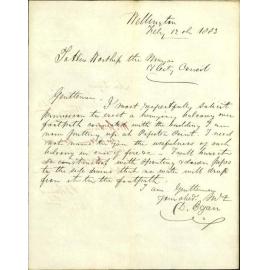 Wellington
July 12th 1883
To His Worship the Mayor
& City Council
Gentlemen, I most respectfully solicit
permission to erect a hanging balcony over
footpath connected with the building I am
now putting up at Papetea Court. I need
not remind you the usefulness of such
balcony in case of fire. I will have it
so constructed with spouting & down pipes
to the side drains that no water will drop
from it on the footpath
I am Gentlemen
Your obdt Svt
Egan